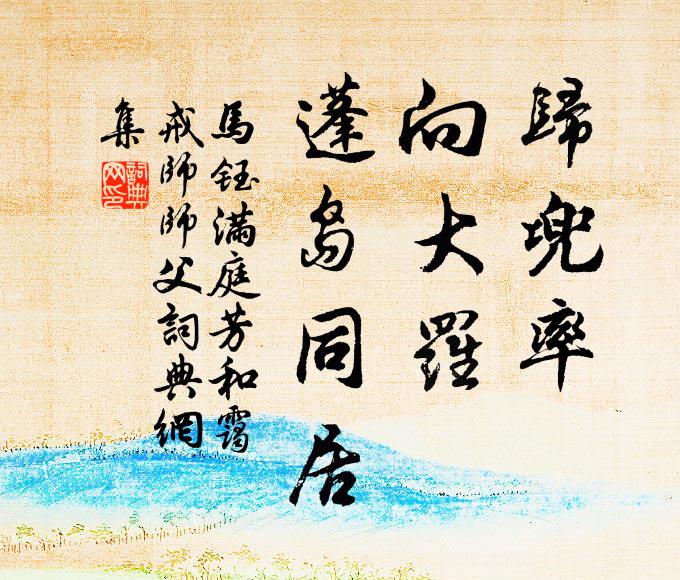 歸兜率
向大羅
蓬島同居
馬鈺滿庭芳和靄
戒師師父詞典網
集
詞典网印